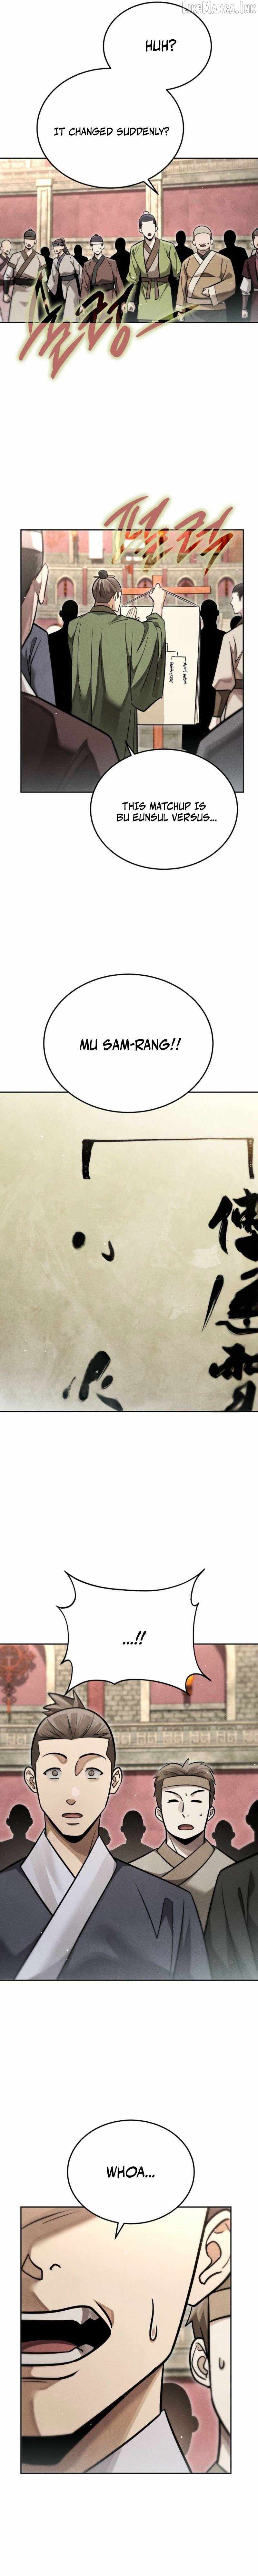 LIKEMANGA.INK
HUH?
IT CHANGED SUDDENLY?
펄럭
THIS MATCHUP IS
BU EUNSUL VERSUS...
MU SAM-RANG!!
...!!
WHOA...